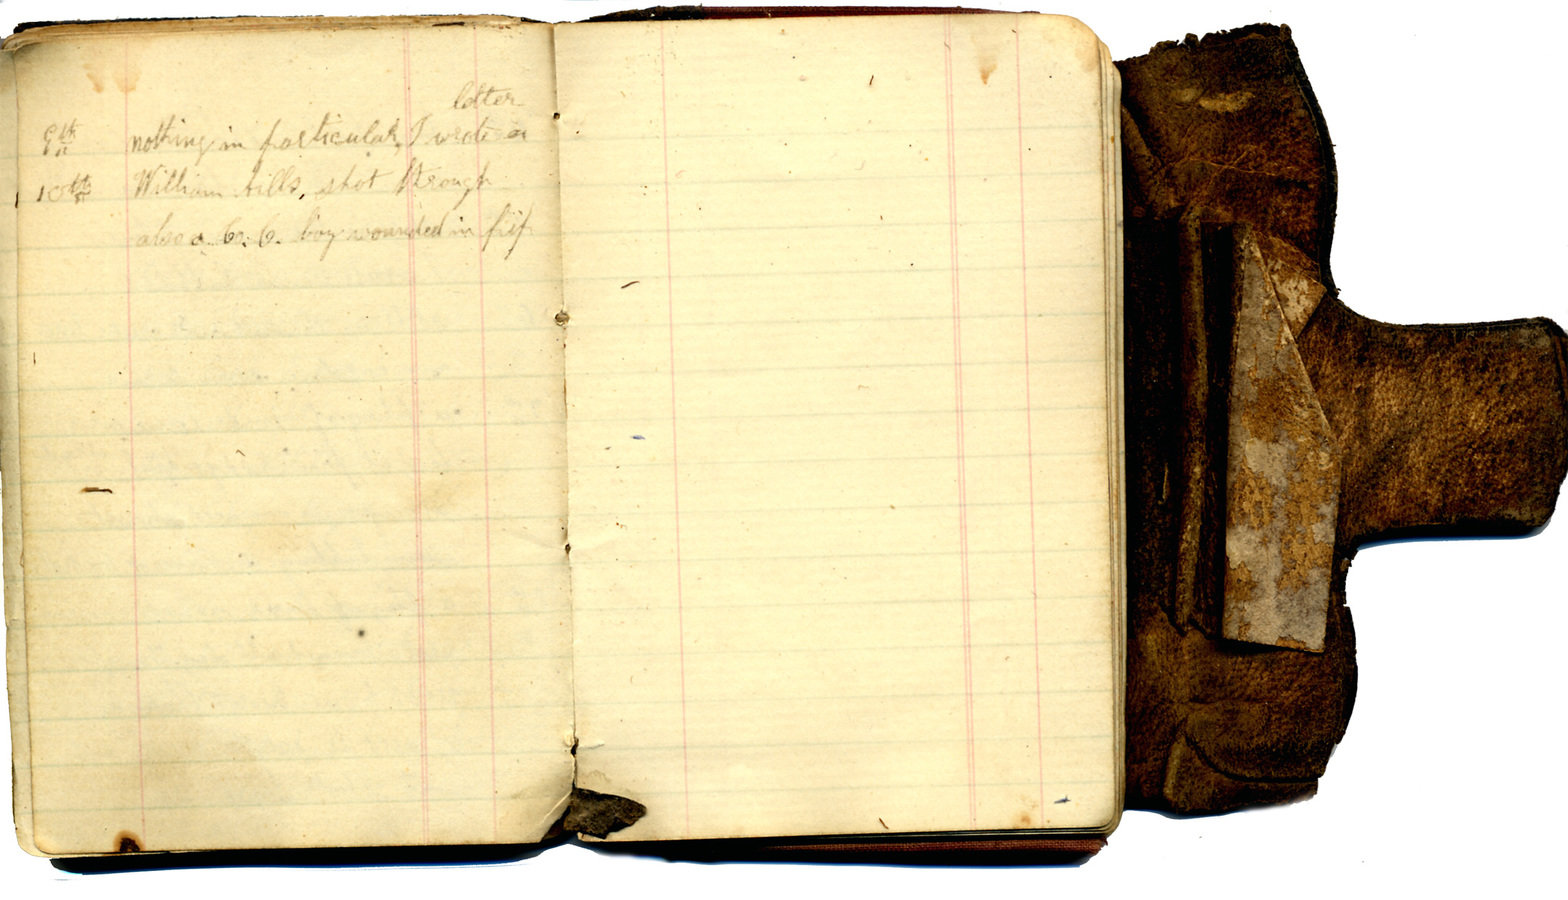 letter
9th nothing in particular, I wrote a
10th William Hills, shot through
also a Co. G. boy wounded in